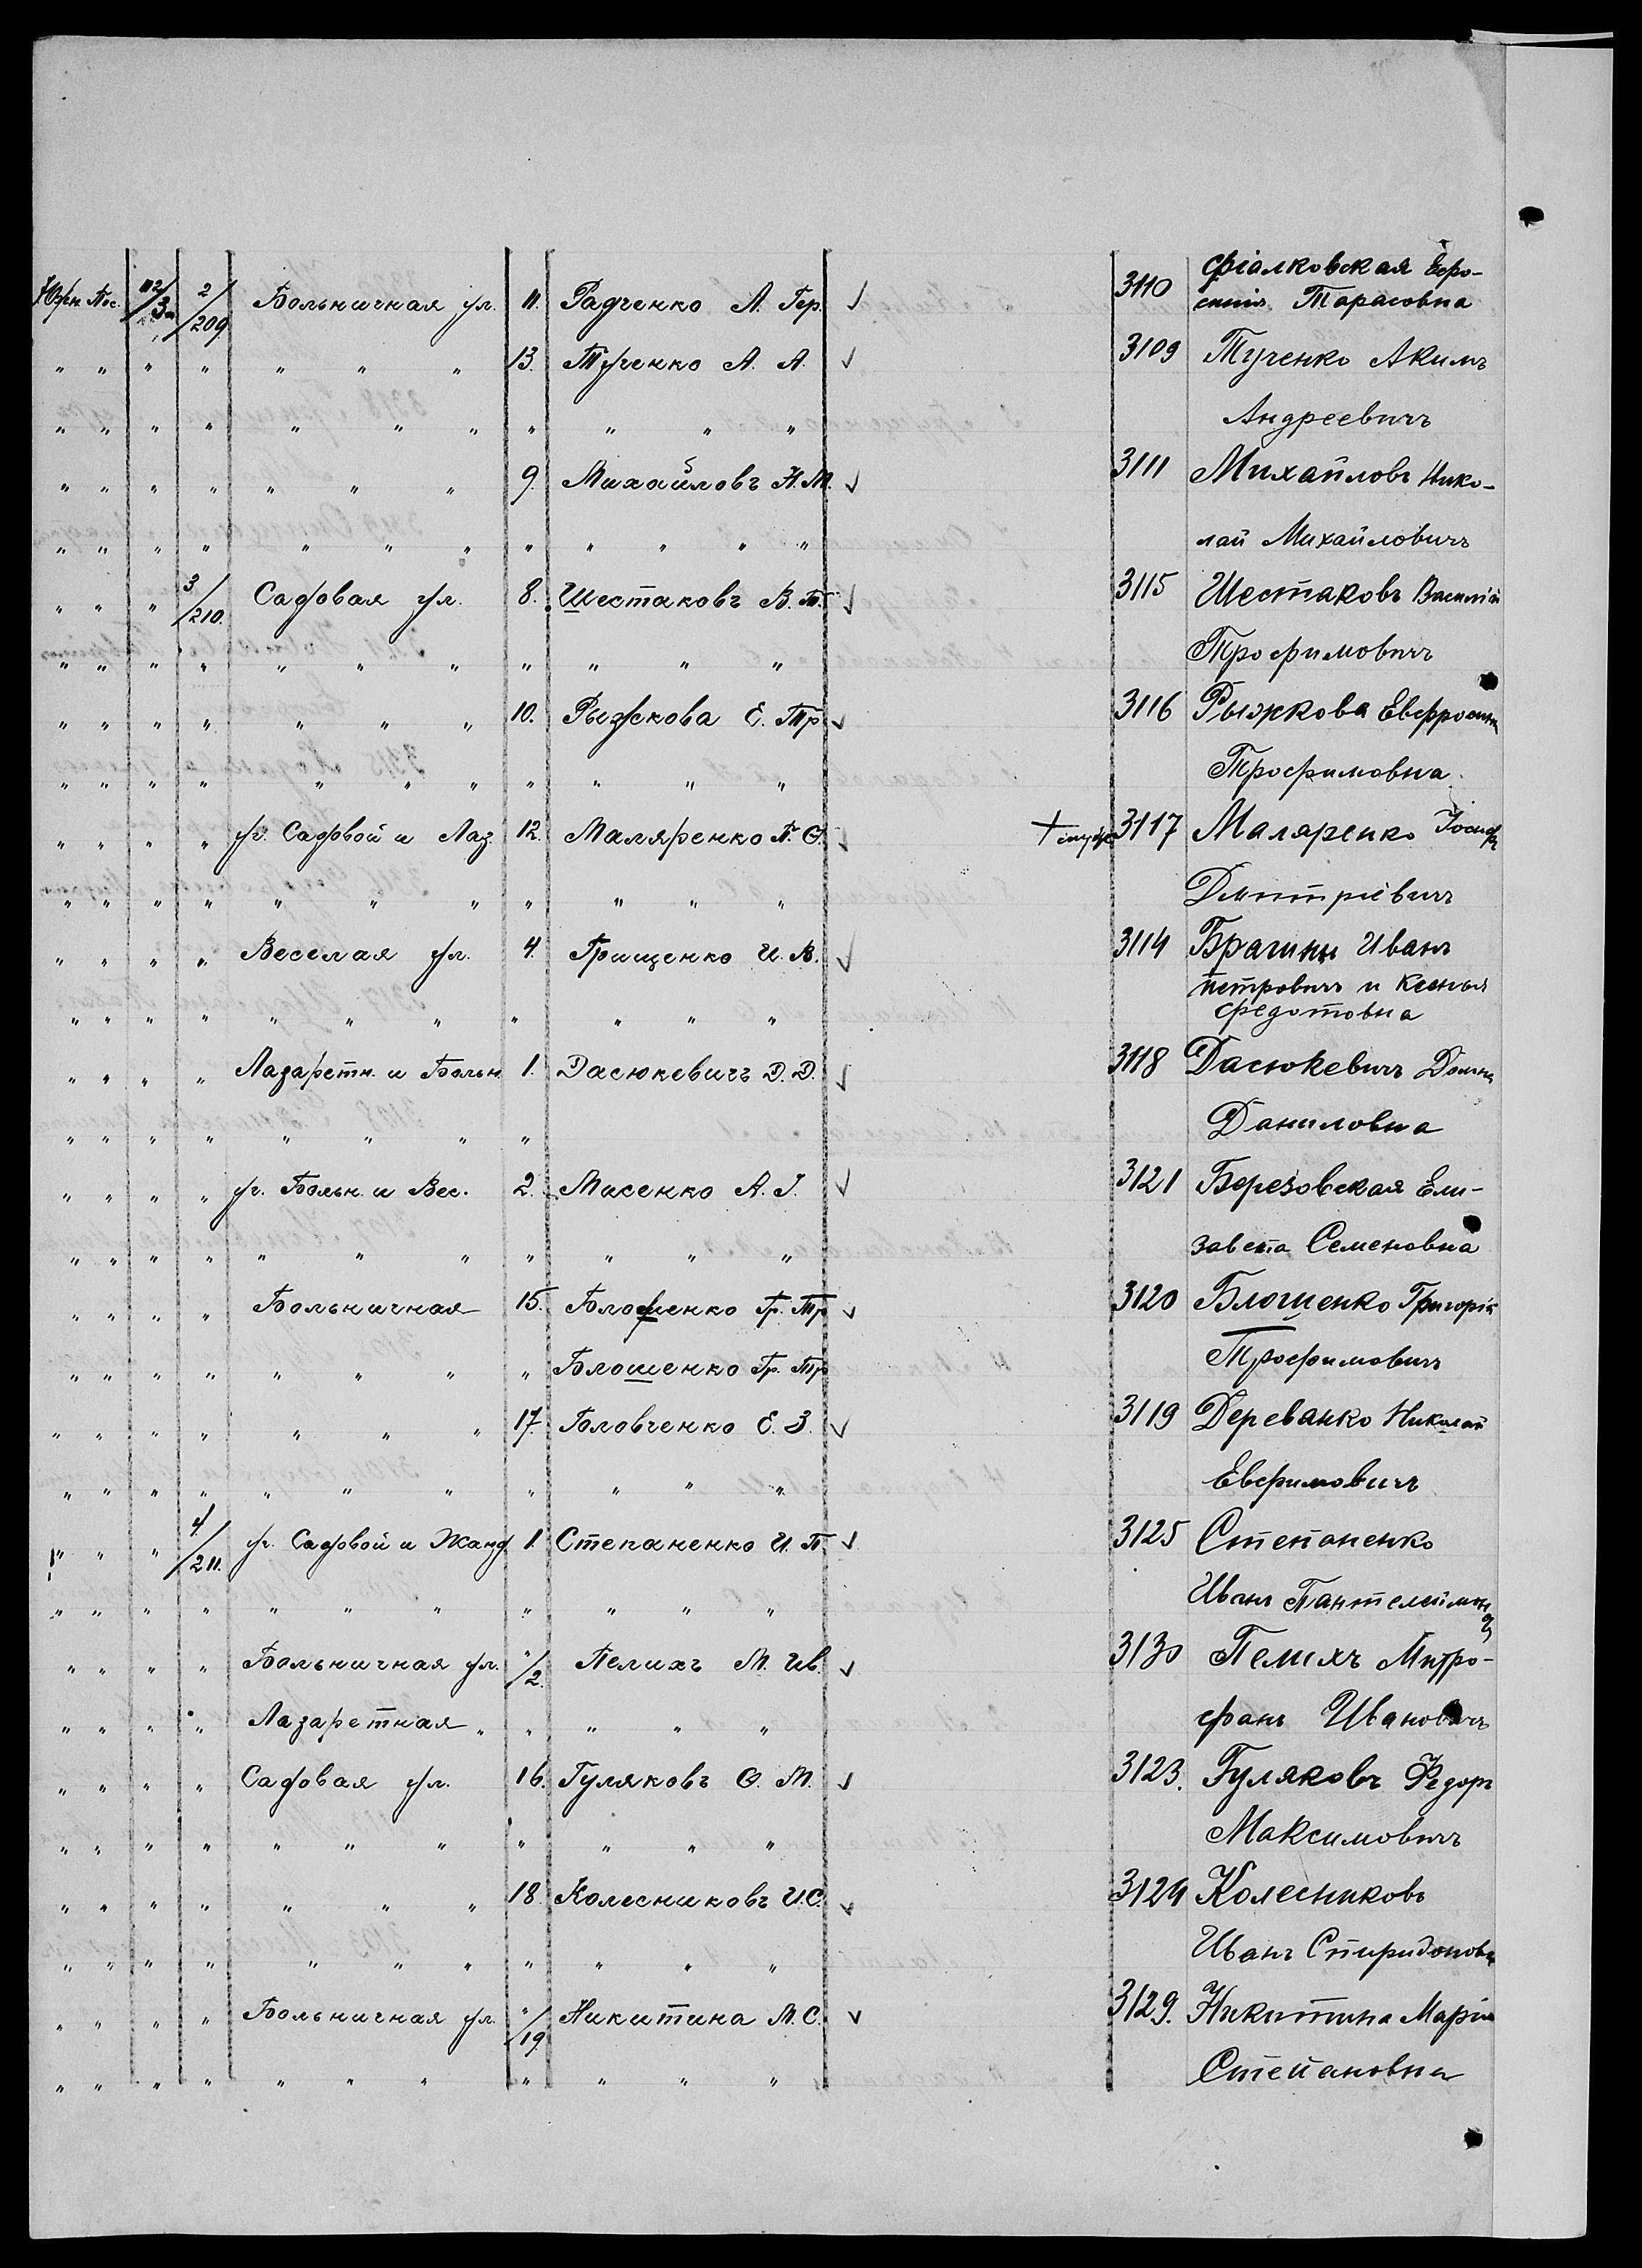 Южн. Пос. 112/3 2/209 Больничная ул. 11. Радченко А. Гер. 3110 Фіалковская Ефро-
синія Тарасовна
" " " " " " " 13. Тученко А. А. 3109 Тученко Акимъ
" " " " " " " " " " " Андреевичъ
" " " " " " " 9. Михайловъ Н. М. 3111 Михайловъ Нико-
" " " " " " " " " " " " лай Михайловичъ
" " " 3/210. Садовая ул. 8. Шестаковъ В. Т. 3115 Шестаковъ Василій
" " " " " " " " " " " Трофимовичъ
" " " " " " " 10. Рыжкова Е. Тр. 3116 Рыжкова Евфросинія
" " " " " " " " " " " Трофимовна
" " " " уг. Садовой и Лаз. 12. Маляренко 3117 Маляренко Іосифъ
" " " " " " " " " " " Дмитріевичъ
" " " " Веселая ул. 4. Грищенко И. А. 3114 Брагины Иванъ
Петровичъ и Ксенія
" " " " " " " " " " " Федотовна
" " " " Лазаретн. и Больн. 1. Дасюкевичъ Д. Д. 3118 Дасюкевичъ Домна
" " " " " " " " Даниловна
" " " " уг. Больн. и Вес. 2. Мисенко А. І. 3121 Березовская Ели-
" " " " " " " " " " " завета Семеновна
" " " " Больничная 15. Блошенко Гр. Тр. 3120 Блошенко Григорій
" " " " " " " " Блошенко Гр. Тр. Трофимовичъ
" " " " " " " 17. Головченко Е. З. 3119 Деревянко Николай
" " " " " " " " " " " Евфимовичъ
" " " 4/211. уг. Садовой и Жанд. 1. Степаненко И. П. 3125 Степаненко
" " " " " " " " " " " Иванъ
" " " " Больничная ул. "/2. Пелихъ М. Ив. 3130 Пелихъ Митро-
" " " " Лазаретная " " " " " фанъ Ивановичъ
" " " " Садовая ул. 16. Гуляковъ Ѳ. М. 3123. Гуляковъ Федоръ
" " " " " " " " " " " Максимовичъ
" " " " " " " 18. Колесниковъ И. С. 3124 Колесниковъ
" " " " " " " " " " " Иванъ Спиридонов.
" " " " Больничная ул. "/19 Никитина М. С. 3129. Никитина Марія
" " " " " " " " " " " Степановна